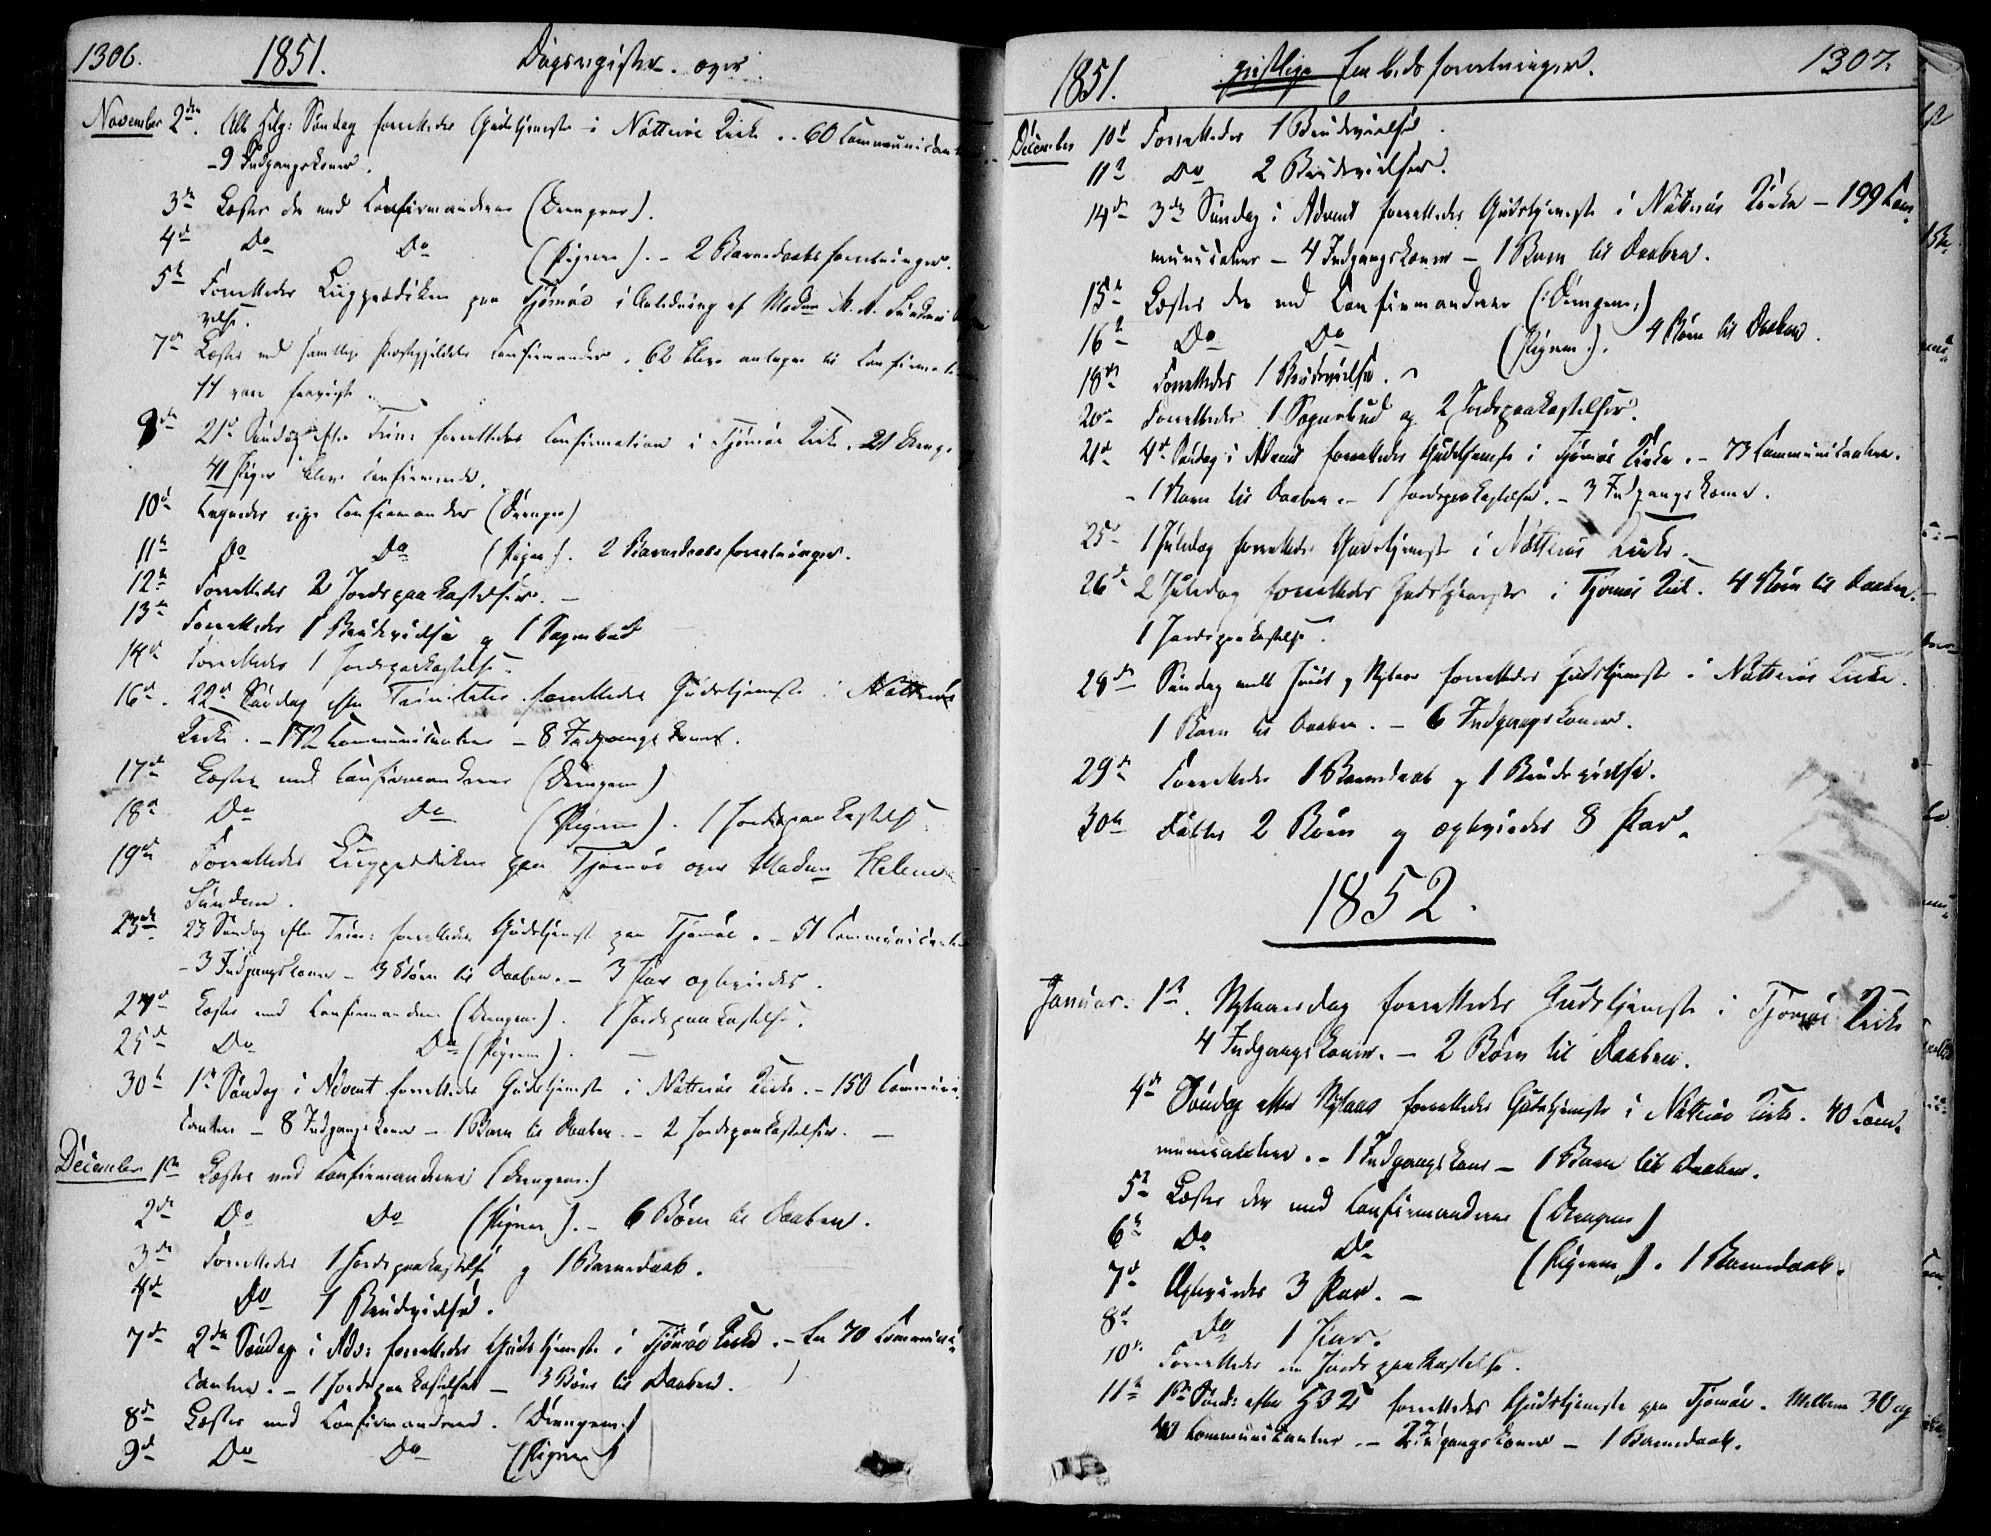 1306.
1851.
Dagsregister over
November 2den. Alle Helg: Søndag forrettedes Gudstjeneste i Nøtterøe Kirke .. 60 Communicanter
- 9 Indgangskoner.
3de Læstes der med Confirmanderne (Drengene).
4de Do Do (Pigerne). - 2 Barnedaabsforretninger.
5te Forrettedes Liigprædiken paa Tjømøe i Anledning af Madm
7de Læstes med samtlige Præstegjeldets Confirmander. 62 bleve antagne til Confirmation
11 vare
9de 21de Søndag efter Trin: forrettedes Confirmation i Tjømøe Kirke. 21 Drenge
41 Piger bleve confirmerede.
10de Confirmander (Drenge)
11te Do Do (Piger). 2 Barnedaabsforretninger.
12te Forrettedes 2 Jordspaakastelser. -
13de Forrettedes 1 Brudevielse og 1 Sognebud
14de Forrettedes 1 Jordspaakastelse.
16de. 22de Søndag efter Trinitatis forrettedes Gudstjeneste i Nøtterøe
Kirke. - 172 Communicanter - 8 Indgangskoner.
17de Læstes med Confirmanderne (Drengene)
18de Do Do (Pigerne). 1 Jordspaakastelse.
19de Forrettedes Liigprædiken paa Tjømøe over Madm Helene
Sundene.
23de 23 Søndag efter Trin: forrettedes Gudstjeneste paa Tjømøe. - 51 Communicanter
- 3 Indgangskoner - 3 Børn til Daaben. - 3 Par ægteviedes.
24de Læstes med Confirmanderne (Drengene). 1 Jordspaakastelse.
25de Do Do (Pigerne). -
30te 1ste Søndag i Advent forrettedes Gudstjeneste i Nøtterøe Kirke. - 150 Communi
canter - 8 Indgangskoner - 1 Barn til Daaben. - 2 Jordspaakastelser. -
December 1ste Læstes med Confirmanderne (Drengene.)
2den Do Do (Pigerne). - 6 Børn til Daaben.
3de Forrettedes 1 Jordspaakastelse og 1 Barnedaab.
4de Do 1 Brudevielse.
7de 2den Søndag i Adv: forrettedes Gudstjeneste i Tjømøe Kirke. - 70 Communi
canter. - 1 Jordspaakastelse - 3 Børn til Daaben.
8de Læstes med Confirmanderne. (Drengene.)
9de Do Do (Pigerne)
1851.
geistlige Embedsforretninger.
1307.
December 10de Forrettedes 1 Brudevielse.
11te Do 2 Brudevielser.
14de 3de Søndag i Advent forrettedes Gudstjeneste i Nøtterøe Kirke - 199 Com
municanter - 4 Indgangskoner - 1 Barn til Daaben.
15de Læstes der med Confirmanderne (: Drengene:)
16de Do Do (Pigerne.). 4 Børn til Daaben.
18de Forrettedes 1 Brudevielse.
20de Forrettedes 1 Sognebud og 2 Jordspaakastelser.
21de 4de Søndag i Advent forrettedes Gudstjeneste i Tjømøe Kirke. - 73 Communicanter.
- 1 Barn til Daaben. - 1 Jordspaakastelse. - 3 Indgangskoner.
25de 1 Juledag forrettedes Gudstjeneste i Nøtterøe Kirke.
26de 2 Juledag forrettedes Gudstjeneste i Tjømøe Kirke. 4 Børn til Daaben. -
1 Jordspaakastelse.
28de Søndag mell Juul og Nytaar forrettedes Gudstjeneste i Nøtterøe Kirke.
1 Barn til Daaben. - 6 Indgangskoner.
29de Forrettedes 1 Barnedaab og 1 Brudevielse.
30te Døbtes 2 Børn og ægteviedes 8 Par.
1852.
Januar. 1ste. Nytaarsdag forrettedes Gudstjeneste i Tjømøe Kirke
4 Indgangskoner. - 2 Børn til Daaben.
4de Søndag efter Nytaar forrettedes Gudstjeneste i Nøtterøe Kirke. 40 Com
municanter. - 1 Indgangskone - 1 Barn til Daaben.
5te Læstes der med Confirmanderne (Drengene)
6te Do Do (Pigerne). 1 Barnedaab.
7de Ægteviedes 3 Par. -
8de Do 1 Par.
10de Forrettedes en Jordspaakastelse.
11te 1ste Sønd: efter H 3 K forrettedes Gudstjeneste paa Tjømøe. Mellem 30 og
40 Communicanter. - 2 Indgangskoner - 1 Barnedaab.